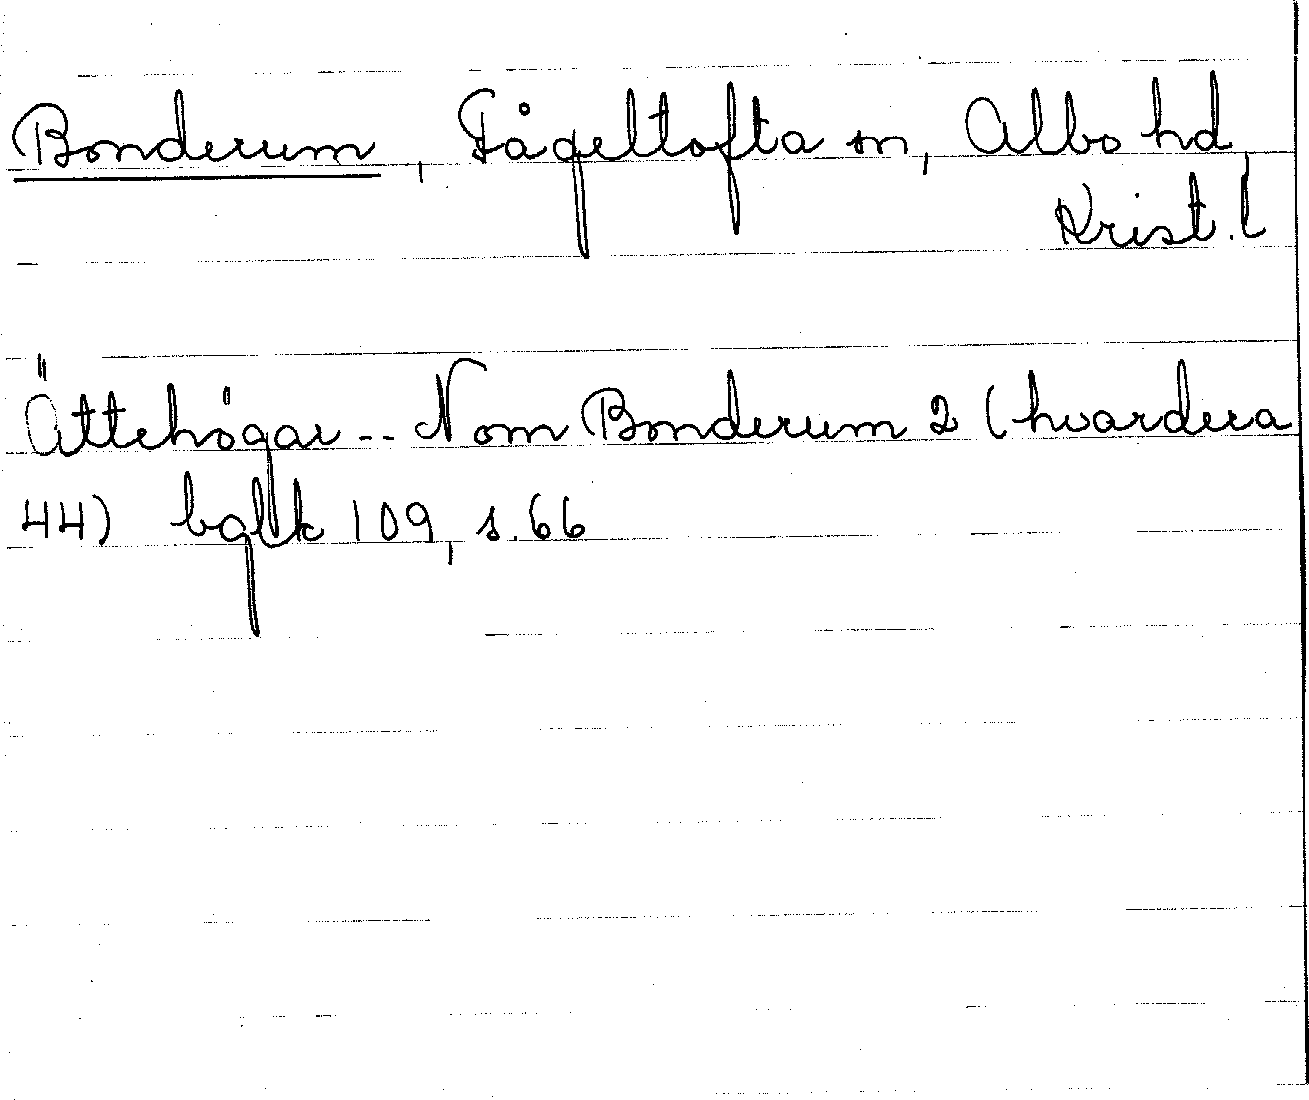 Bonderum, Fågeltofta sn, Albo hd,
Krist. l
Ättehögar -- N om Bonderum 2 (hvardera
44) bglk 109, s. 66